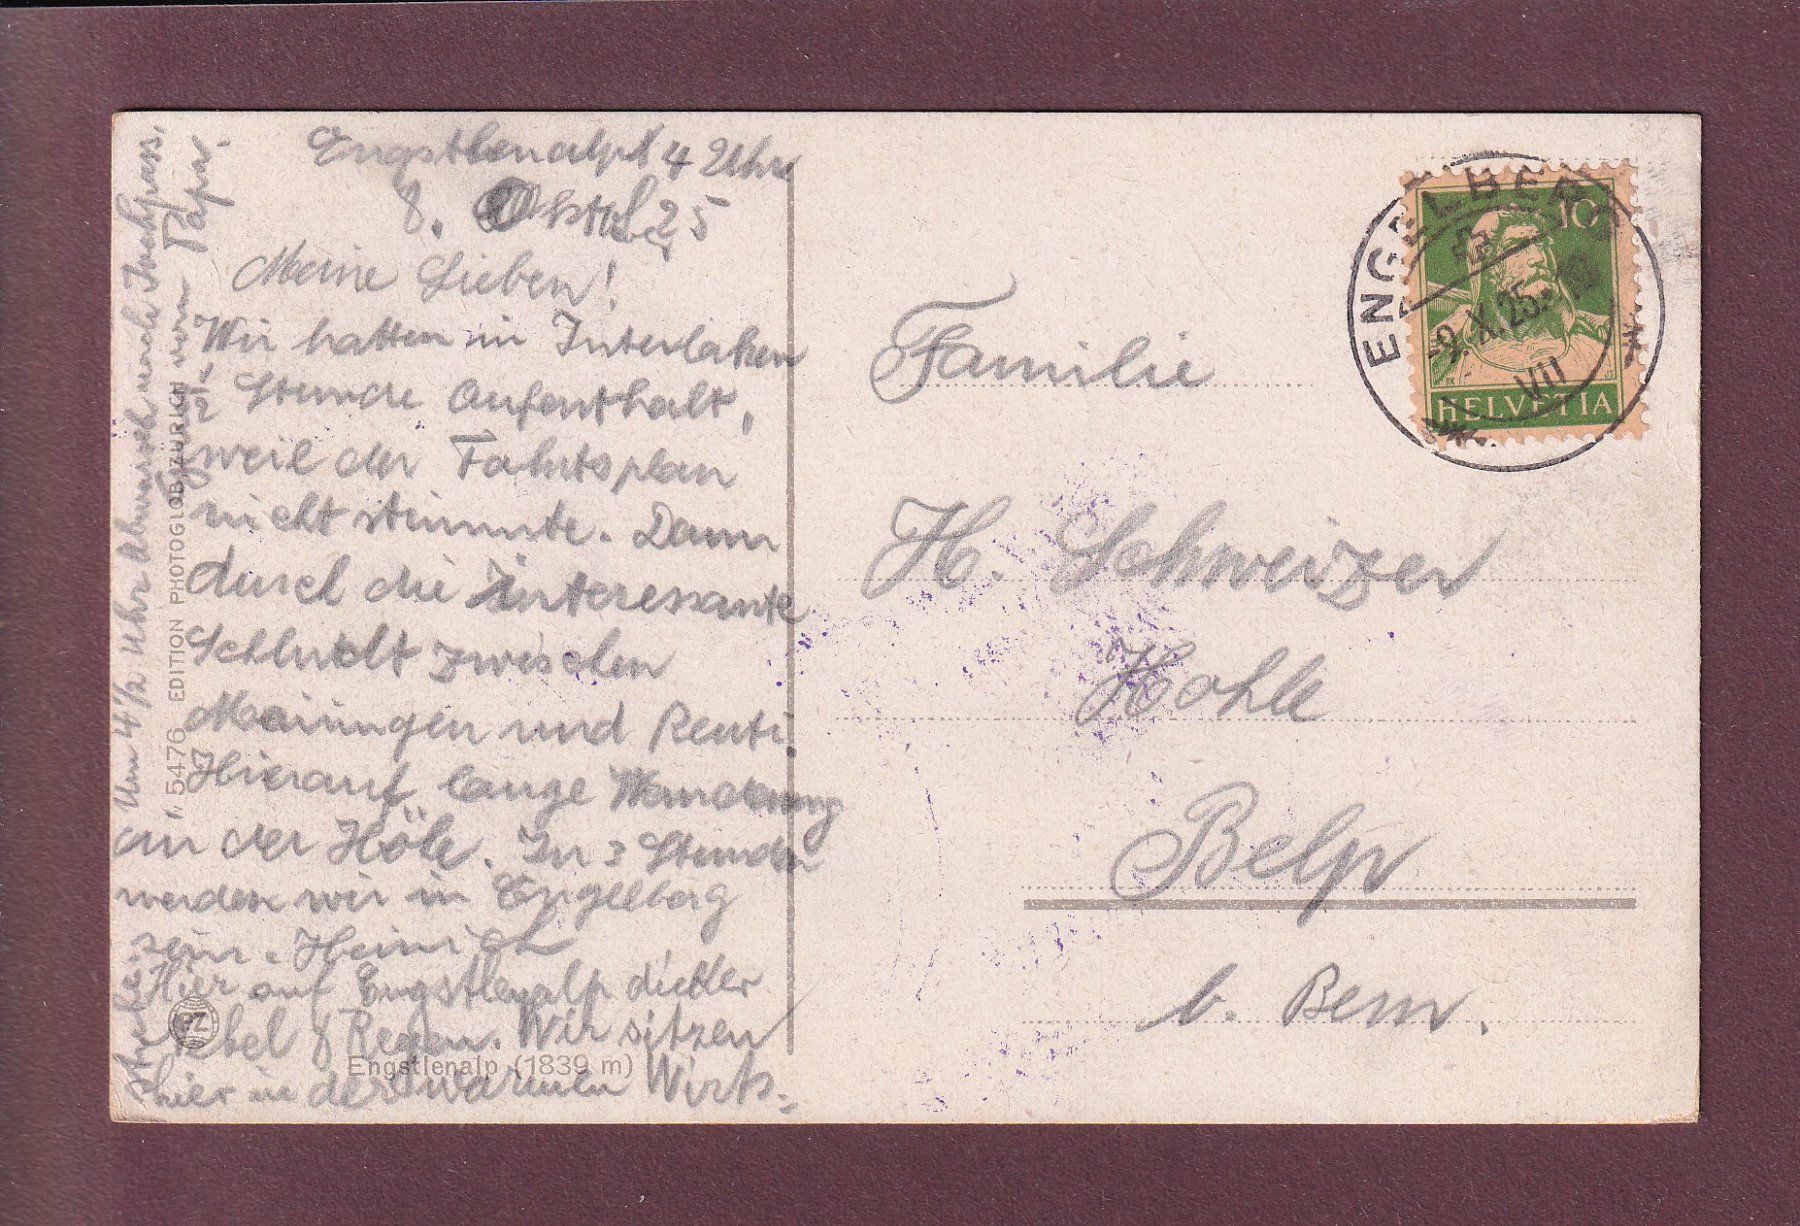 Engstlenalp 4 Uhr
8. Oktober 25
Meine Lieben!
Wir hatten in Interlaken
1/2 Stunde Aufenthalt,
weil der Fahrtsplan
nicht stimmte. Dann
durch die interessante
Schlucht zwischen
Mairingen und Reuti.
Hierauf lange Wanderung
an der Höhe. In 3 Stunden
werden wir in Engelberg
sein. Heinrich
Hier auf Engstlenalp dichter
Nebel & Regen. Wir sitzen
hier in der warmen Wirts-
stube.
Um 4 1/2 Uhr Abmarsch nach Jochpass.
Gruss vom Papa.
Familie
H. Schweizer
Hohle
Belp
b. Bern.
ENGELBERG
-9.X.25.-10
VII
10
HELVETIA
N 5476 EDITION PHOTOGLOB, ZÜRICH
PZ
Engstlenalp (1839 m)